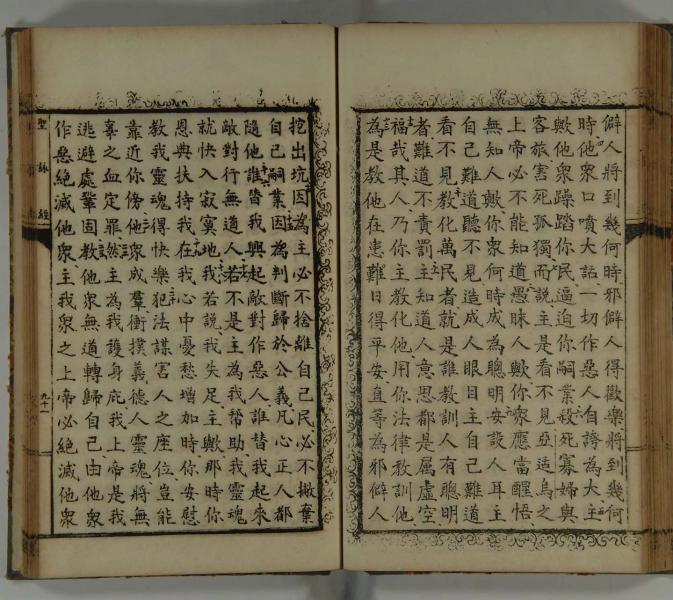 僻人將到幾何時邪僻人得歡樂將到幾何
時他眾口噴大話一切作惡人自誇為大主
歟他眾躁踏你民逼迫你嗣業殺死寡婦與
客旅害死孤獨而說主是看不見亞适烏之
上帝必不能知道愚昧人歟你眾應當醒悟
無知人歟你眾何時成為聰明安設人耳主
自己難道聽不見造成人眼目主自己難道
看不見教化萬民者就是誰教訓人有聰明
者難道不責罰主知道人意思都是屬虛空
福哉其人乃你主教化他用你法律教訓他
為是教他在患難日得平安直等為邪僻人
挖出坑因為主必不捨離自己民必不撇棄
自己嗣業因為判斷歸於公義凡心正人都
隨他誰替我興起敵對作惡人誰替我起來
敵對行無道人若不是主為我幫助我靈魂
就快入寂寞地我若說我失足主歟那時你
恩典扶持我在我心中憂愁增加時你安慰
教我靈魂得快樂犯法謀害人之座位豈能
靠近你傍他眾成羣衝撲義德人靈魂將無
辜之血定罪然主為我護身庇我上帝是我
逃避處鞏固教他眾無道轉歸自己由他眾
作惡絕滅他眾主我眾之上帝必絕滅他眾
聖詠經
九十一